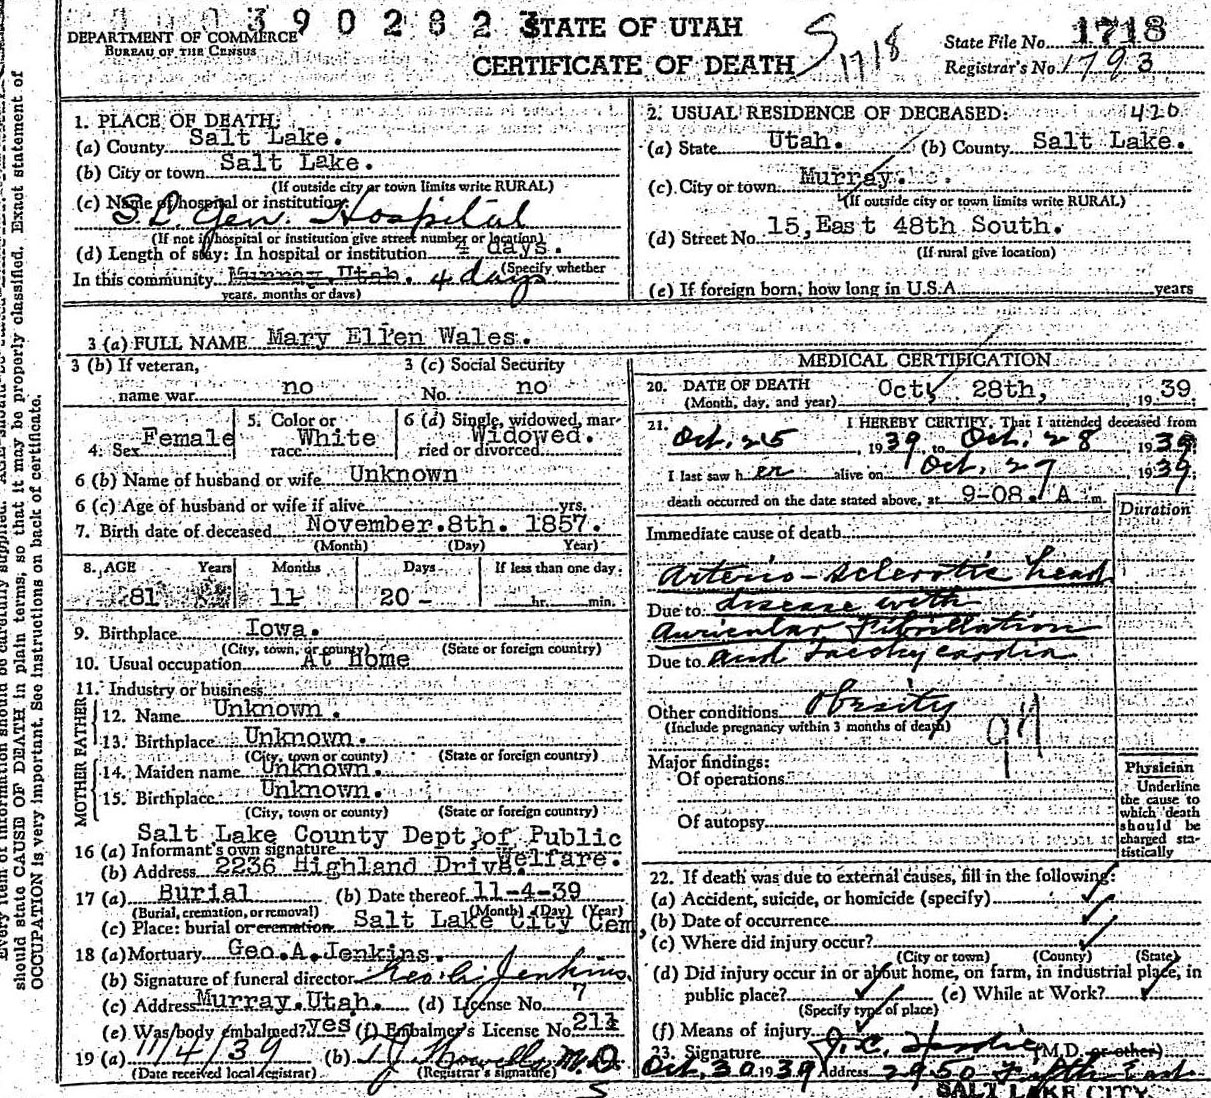 390282
STATE OF UTAH
DEPARTMENT OF COMMERCE
BUREAU OF THE CENSUS
CERTIFICATE OF DEATH
S 1718
State File No. 1718
Registrar's No. 1793
1. PLACE OF DEATH:
(a) County Salt Lake.
(b) City or town Salt Lake.
(If outside city or town limits write RURAL)
(c) Name of hospital or institution:
S. L. Gen. Hospital
(If not in hospital or institution give street number or location)
(d) Length of stay: In hospital or institution 4 days.
(Specify whether
In this community Murray, Utah. 4 days
years, months or days)
2. USUAL RESIDENCE OF DECEASED: 420
(a) State Utah. (b) County Salt Lake.
(c) City or town Murray.
(If outside city or town limits write RURAL)
(d) Street No. 15, East 48th South.
(If rural give location)
(e) If foreign born, how long in U.S.A. years
3 (a) FULL NAME Mary Ellen Wales.
3 (b) If veteran, 3 (c) Social Security
name war no No. no
4. Sex Female 5. Color or race White 6 (d) Single, widowed, married or divorced Widowed.
6 (b) Name of husband or wife Unknown
6 (c) Age of husband or wife if alive yrs.
7. Birth date of deceased November.8th. 1857.
(Month) (Day) Year)
8. AGE Years Months Days If less than one day
81 11 20 - hr. min.
9. Birthplace Iowa.
(City, town, or county) (State or foreign country)
10. Usual occupation At Home
11. Industry or business
FATHER
12. Name Unknown.
13. Birthplace Unknown.
(City, town or county) (State or foreign country)
MOTHER
14. Maiden name Unknown.
15. Birthplace Unknown.
(City, town or county) (State or foreign country)
Salt Lake County Dept, of Public
16 (a) Informant's own signature Welfare.
(b) Address 2236 Highland Drive.
17 (a) Burial (b) Date thereof 11-4-39
(Burial, cremation, or removal) (Month) (Day) (Year)
(c) Place: burial or cremation Salt Lake City Cem,
18 (a) Mortuary Geo.A.Jenkins.
(b) Signature of funeral director Geo. A. Jenkins.
(c) Address Murray.Utah. (d) License No. 7
(e) Was body embalmed? yes (f) Embalmer's License No. 211
19 (a) 11/4/39 (b) M.D.
(Date received local registrar) (Registrar's signature)
MEDICAL CERTIFICATION
20. DATE OF DEATH Oct, 28th, 1939
(Month, day, and year)
21. I HEREBY CERTIFY, That I attended deceased from
Oct. 25, 1939, to Oct. 28, 1939
I last saw her alive on Oct. 27 1939;
death occurred on the date stated above, at 9-08. A m.
Duration
Immediate cause of death
Arterio-sclerotic heart
Due to disease with
Auricular Fibrillation
Due to and Tachycardia
Other conditions Obesity
(Include pregnancy within 3 months of death)
Major findings:
Of operations
Of autopsy
Physician
Underline
the cause to
which death
should be
charged sta-
tistically
22. If death was due to external causes, fill in the following:
(a) Accident, suicide, or homicide (specify)
(b) Date of occurrence
(c) Where did injury occur?
(City or town) (County) (State)
(d) Did injury occur in or about home, on farm, in industrial place, in
public place? (e) While at Work?
(Specify type of place)
(f) Means of injury
23. Signature J. C. (M.D. or other)
Oct. 30, 1939 Address 2950 Fifth East
SALT LAKE CITY,
Every item of information should be carefully supplied. AGE should be
should state CAUSE OF DEATH in plain terms, so that it may be properly classified. Exact statement of
OCCUPATION is very important. See instructions on back of certificate.